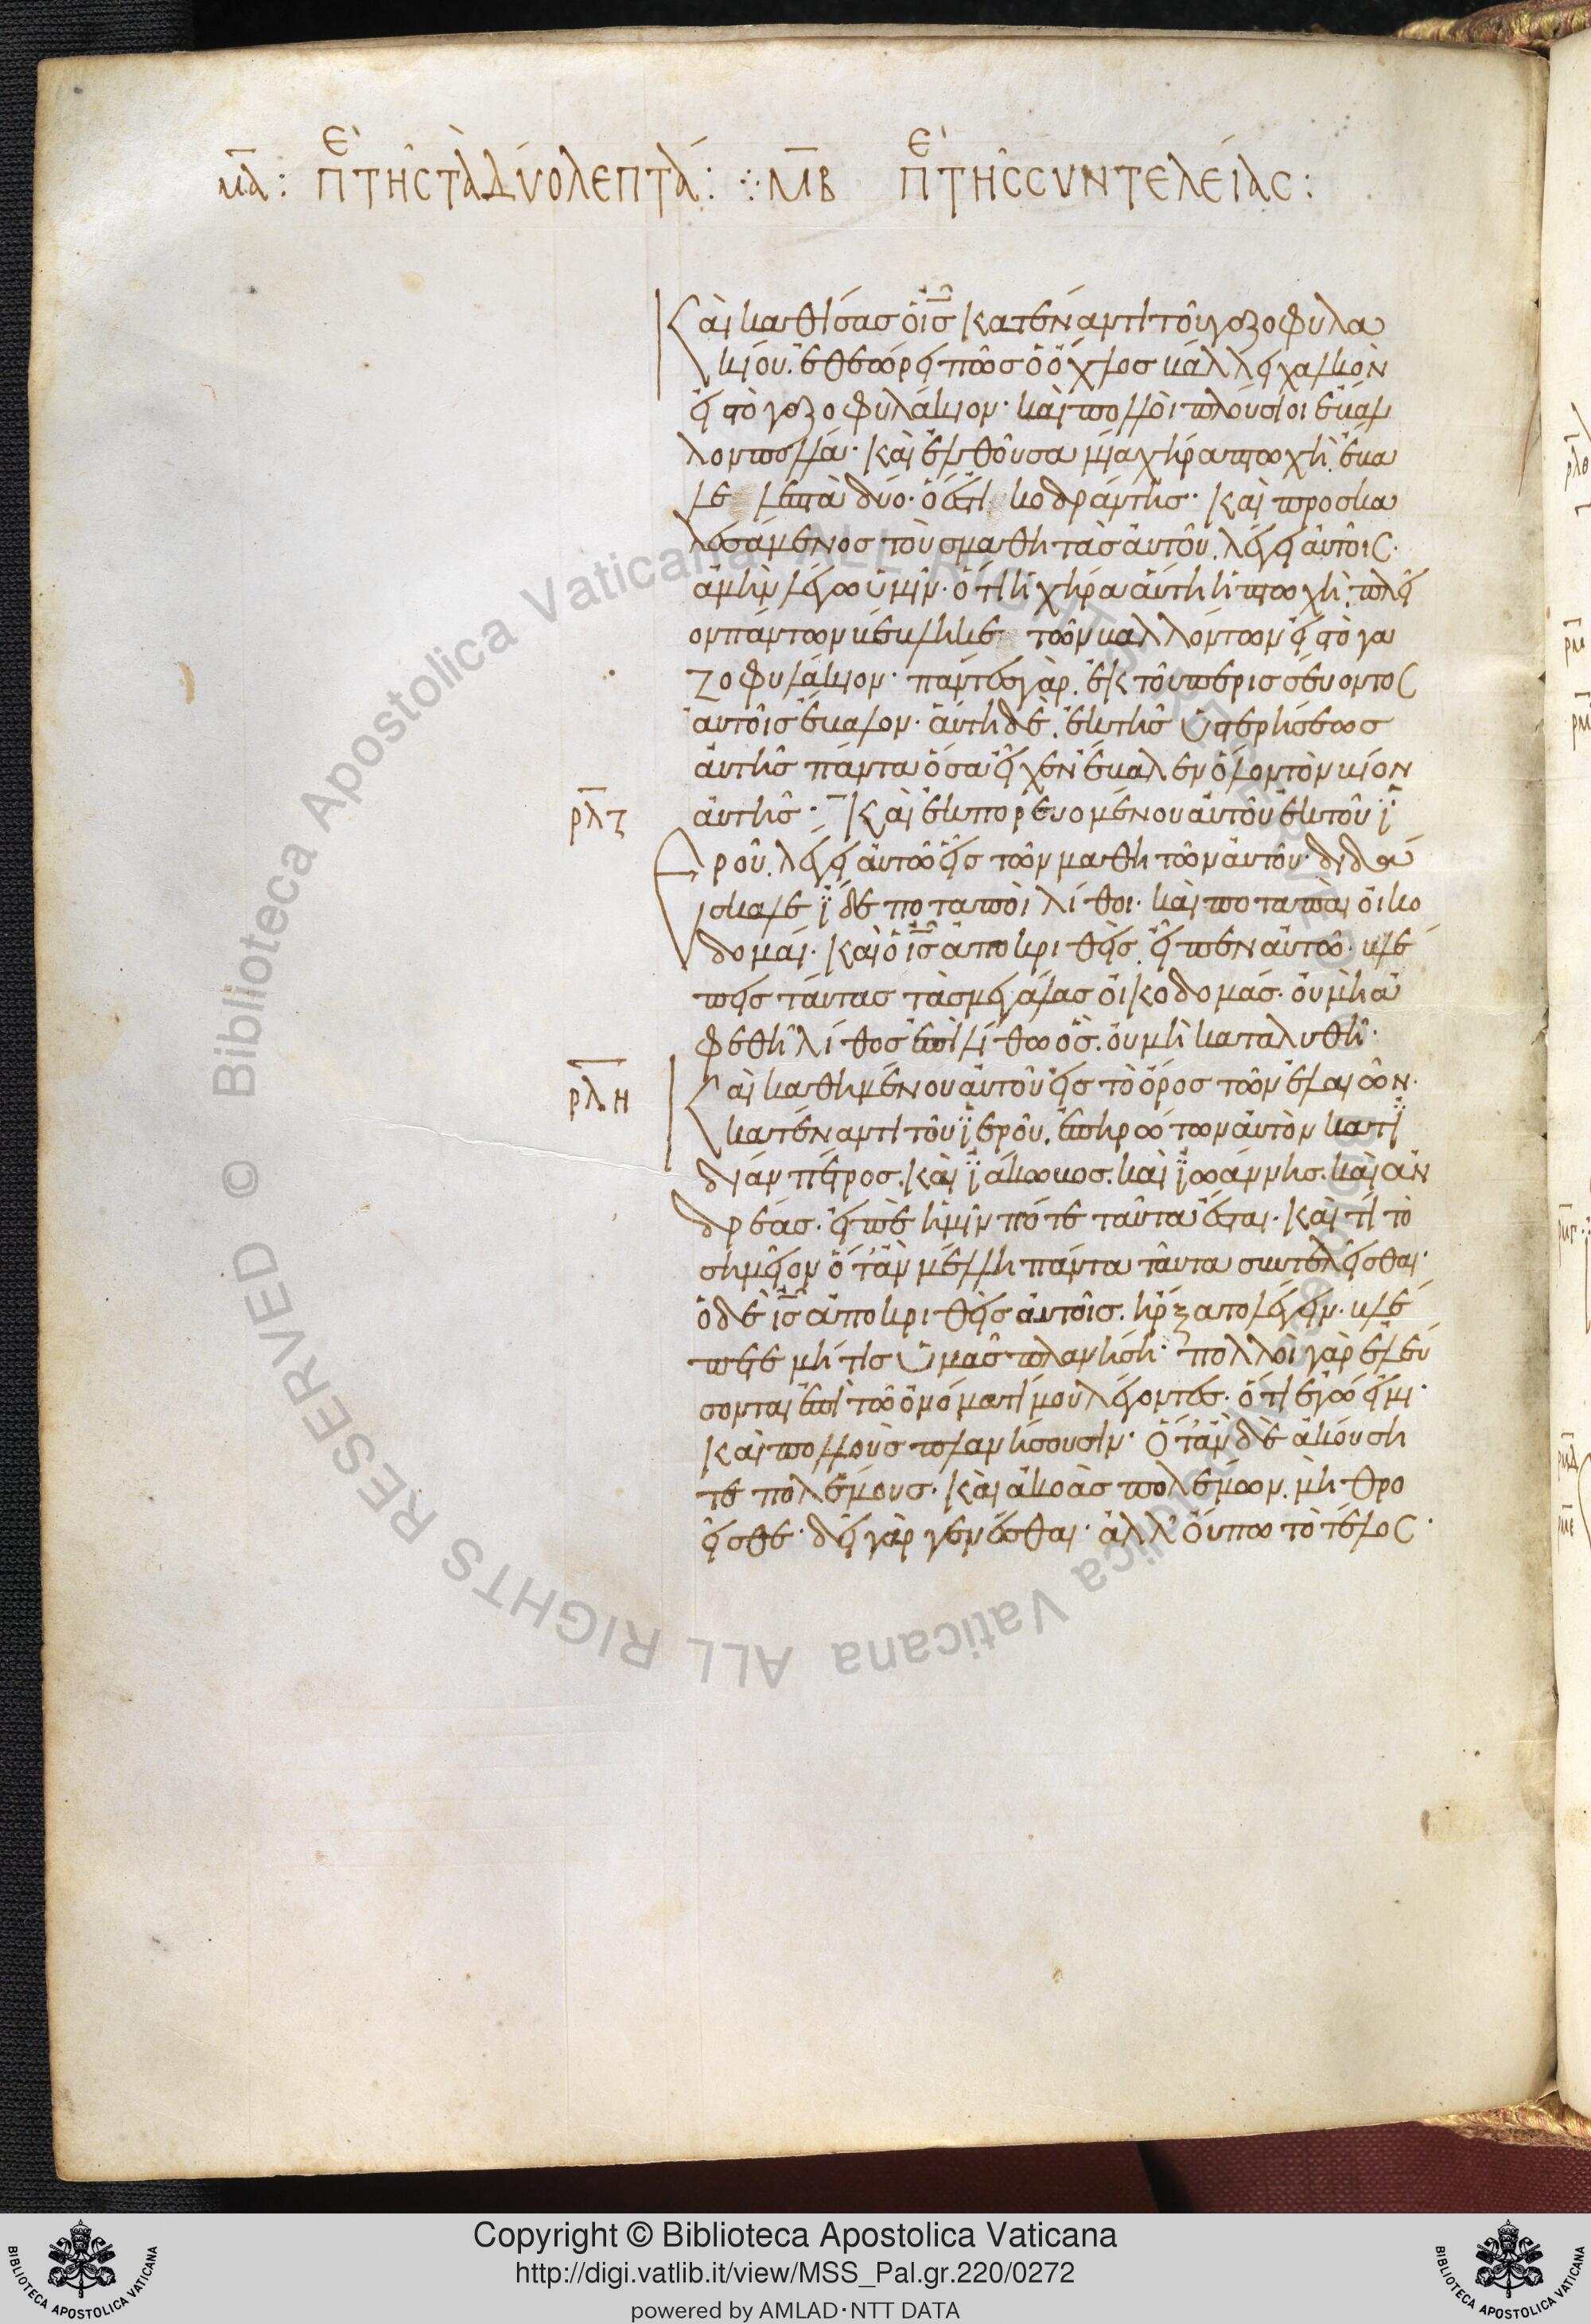 μα: πε τῆς τὰ δύο λεπτά: ⁘ μβ πε τῆς συντελείας:
Καὶ καθίσας ὁ ις κατέναντι τοῦ γαζοφυλα
κίου. ἐθεώρει πῶς ὁ ὄχλος βάλλει χαλκὸν
εἰς τὸ γαζοφυλάκιον· καὶ πολλοὶ πλούσιοι ἔβαλ
λον πολλά· καὶ ἐλθοῦσα μία χήρα πτωχὴ. ἔβα
λε λεπτὰ δύο· ὅ ἐστι κοδράντης· καὶ προσκα
λεσάμενος τοὺς μαθητὰς αὐτοῦ. λέγει αὐτοῖς·
ἀμὴν λέγω ὑμῖν· ὅτι ἡ χήρα αὕτη ἡ πτωχὴ. πλεῖ
ον πάντων βέβληκε τῶν βαλλόντων εἰς τὸ γα
ζοφυλάκιον· πάντες γὰρ. ἐκ τοῦ περισσέυοντος
αὐτοῖς ἔβαλον· αὕτη δὲ. ἐκ τῆς ὑστερήσεως
αὐτῆς πάντα ὅσα εἶχεν ἔβαλεν ὅλον τὸν βίον
ρλζ αὐτῆς· Καὶ ἐκπορευομένου αὐτοῦ ἐκ τοῦ ἱ
εροῦ. λέγει αὐτῷ εἷς τῶν μαθητῶν αὐτοῦ· διδά
σκαλε ἴδε ποταποὶ λίθοι· καὶ ποταπαὶ οἰκο
δομαί· καὶ ὁ ις ἀποκριθεὶς. εἶπεν αὐτῷ· βλέ
πεις ταύτας τὰς μεγάλας οἰκοδομάς· οὐ μὴ ἀ
φεθῆ λίθος ἐπὶ λίθω ὃς. οὐ μὴ καταλυθῆ·
ρλη Καὶ καθημένου αὐτοῦ εἰς τὸ ὄρος τῶν ἐλαιῶν·
κατέναντι τοῦ ἱεροῦ. ἐπηρώτων αὐτὸν κατἰ
δίαν πέτρος. καὶ ἰάκωβος. καὶ ἰωάννης. καὶ ἀν
δρέας· εἰπὲ ἡμῖν πότε ταῦτα ἔσται· καὶ τί τὸ
σημεῖον ὅτἂν μέλλη πάντα ταῦτα συντελεῖσθαι·
ὁ δὲ ις ἀποκριθεὶς αὐτοῖς. ἤρξατο λέγειν· βλέ
πετε μή τις ὑμᾶς πλανήσῃ· πολλοὶ γὰρ ἐλεύ
σονται ἐπὶ τῷ ὀνόματί μου λέγοντες· ὅτι ἐγώ εἰμι·
καὶ πολλοὺς πλανήσουσιν· ὅτἂν δὲ ἀκούση
τε πολέμους· καὶ ἀκοὰς πολέμων. μὴ θρο
εῖσθε· δεῖ γὰρ γενέσθαι· ἀλλ' οὔπω τὸ τέλος·
Copyright © Biblioteca Apostolica Vaticana
http://digi.vatlib.it/view/MSS_Pal.gr.220/0272
powered by AMLAD·NTT DATA